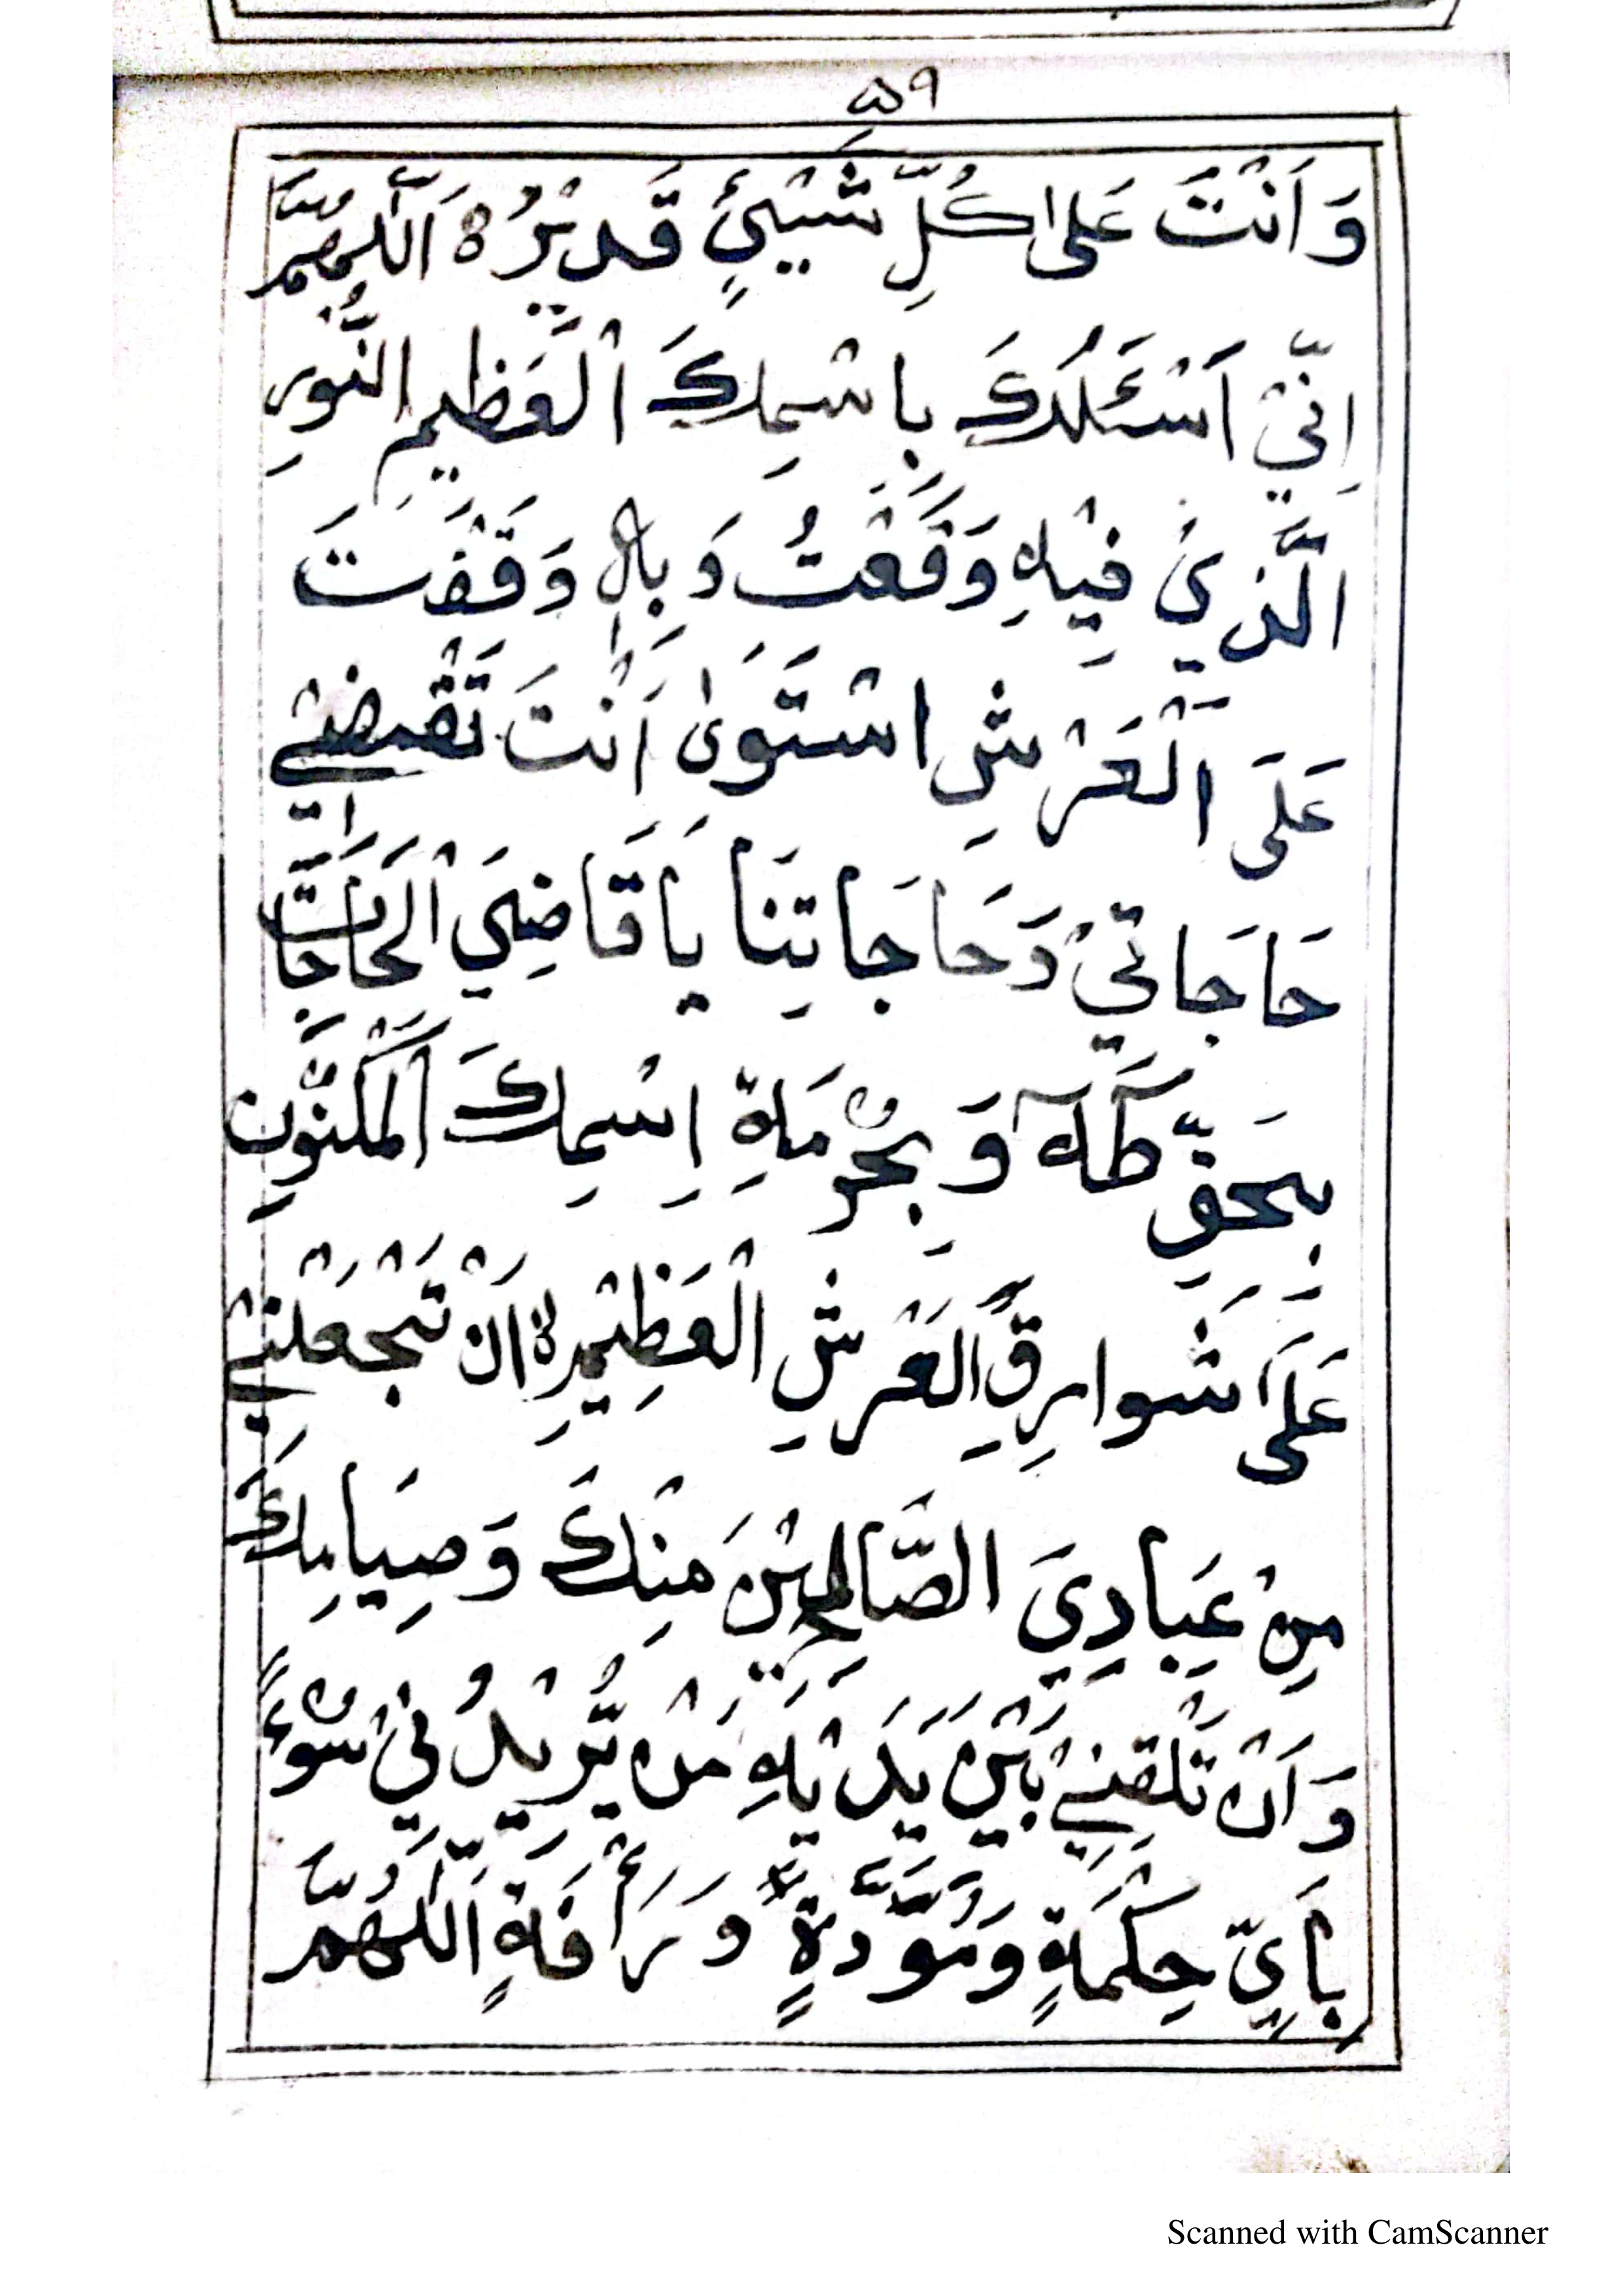 ۵۹
وَ اَنْتَ عَلىٰ كُلِّ شَيْئٍ قَدِيْرُ ہ اَللّٰهُمَّ
اِنِّيْ اَسْئَلُكَ بِاسْمِكَ الْعَظِيمِ النُّورِ
الَّذِيْ فِيْهِ وَقَعْتُ وَ بِهٖ وَقَفْتَ
عَلَى الْعَرْشِ اسْتَوىٰ اَنْتَ تَقْضِيْ
حَاجَاتِيْ وَحَاجَاتِنَا يَا قَاضِيَ الْحَاجَاتِ
بِحَقِّ طٰهٰ وَ بِحُرْمَةِ اِسْمِكَ الْمَكْنُونِ
عَلىٰ شَوَارِقِ الْعَرْشِ الْعَظِيْمِ ہ اَنْ تَجْعَلْنِيْ
مِنْ عِبَادِيَ الصَّالِحِيْنَ مِنْكَ وَصِيَامِكَ
وَ اَنْ تَلْقِنِيْ بَيْنَ يَدَيْهِ مَنْ يُّرِيْدُنِيْ سُوْءً
بِاَيِّ حِكْمَةٍ وَمَوَدَّةٍ وَرَأْفَةٍ اَللّٰهُمَّ
Scanned with CamScanner